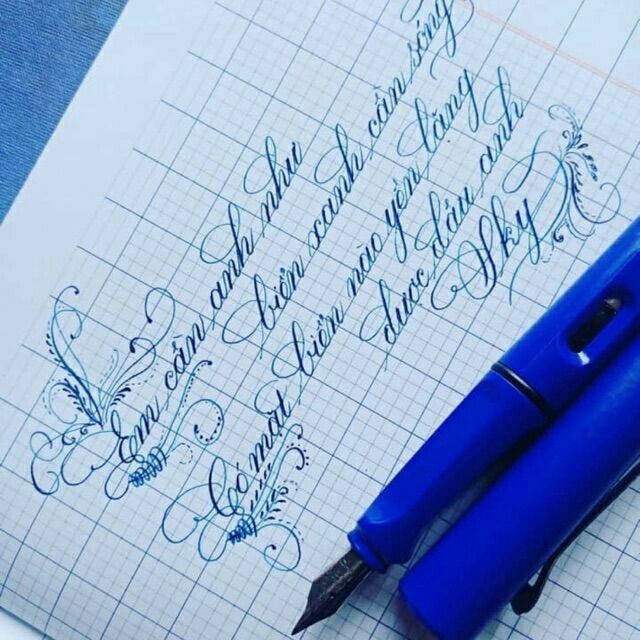 Em cần anh như
biển xanh cần sóng
Có mặt biển nào yên lặng
được đâu anh
Sky